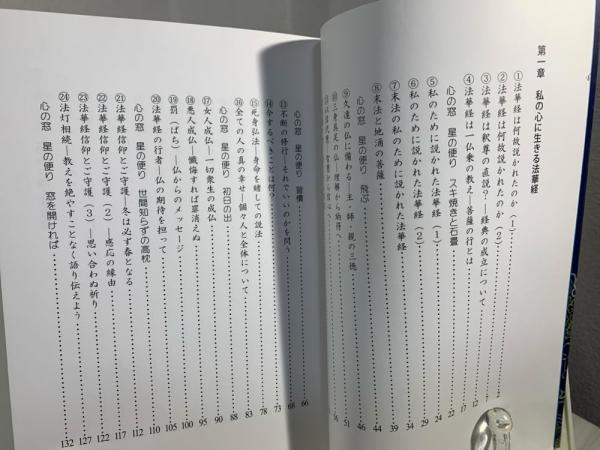 第一章　私の心に生きる法華経
①法華経は何故説かれたのか（1）
②法華経は何故説かれたのか（2） 12
③法華経は釈尊の直説？―経典の成立について 17
④法華経は一仏乗の教え―菩薩の行とは 22
心の窓　星の便り　スキ焼きと石畳 24
⑤私のために説かれた法華経（1） 29
⑥私のために説かれた法華経（2） 34
⑦末法の私のために説かれた法華経 39
⑧末法と地涌の菩薩 44
心の窓　星の便り　飛ぶ 46
⑨久遠の仏に備わる主・師・親の三徳 51
⑩三身具足の 理解から納得へ 56
心の窓　星の便り　習慣 66
⑬不断の修行―それでいいのかを問う 68
⑭今するべきことは何？ 73
⑮死身弘法―身命を賭しての説法 78
⑯全ての人の真の幸せ―個々人と全体について 83
心の窓　星の便り　初日の出 88
⑰女人成仏―一切衆生の成仏 90
⑱悪人成仏―懺悔すれば罪消えぬ 95
⑲罰（ばち）―仏からのメッセージ 100
⑳法華経の行者―仏の期待を担って 105
心の窓　星の便り　世間知らずの高枕 110
㉑法華経信仰とご守護―冬は必ず春となる 112
㉒法華経信仰とご守護（2）―感応の縁由 117
㉓法華経信仰とご守護（3）―思い合わぬ祈り 122
㉔法灯相続―教えを絶やすことなく語り伝えよう 127
心の窓　星の便り　窓を開ければ 132